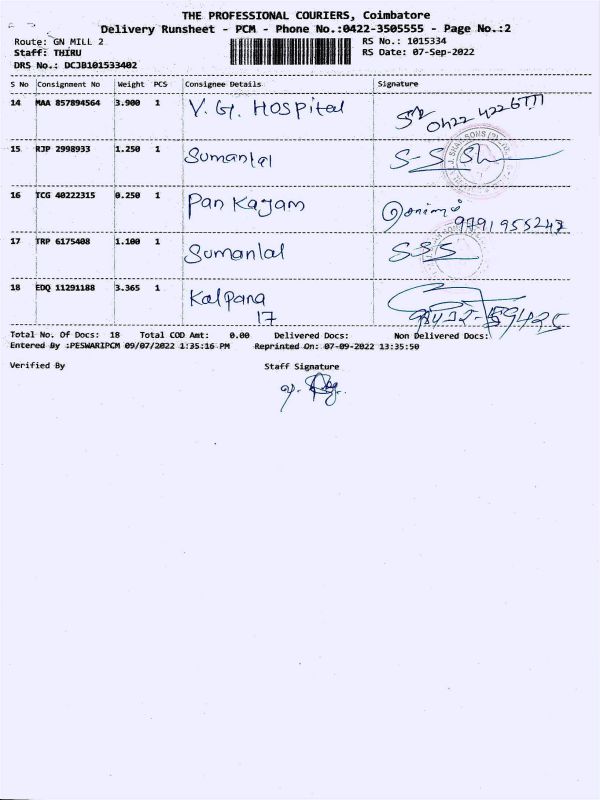 THE PROFESSIONAL COURIERS, Coimbatore
Delivery Runsheet - PCM - Phone No.:0422-3505555 - Page No.:2
Route: GN MILL 2 RS No.: 1015334
Staff: THIRU RS Date: 07-Sep-2022
DRS No.: DCJB101533402
S No Consignment No Weight PCS Consignee Details Signature
14 MAA 857894564 3.900 1 V. G. HOSPital
15 RJP 2998933 1.250 1 Sumanlal S-S Sh
16 TCG 40222315 0.250 1 Pan Kajam
9791955247
17 TRP 6175408 1.100 1 Sumanlal SSS
18 EDQ 11291188 3.365 1 Kalpana
17
Total No. Of Docs: 18 Total COD Amt: 0.00 Delivered Docs: Non Delivered Docs:
Entered By :PESWARIPCM 09/07/2022 1:35:16 PM Reprinted On: 07-09-2022 13:35:50
Verified By Staff Signature